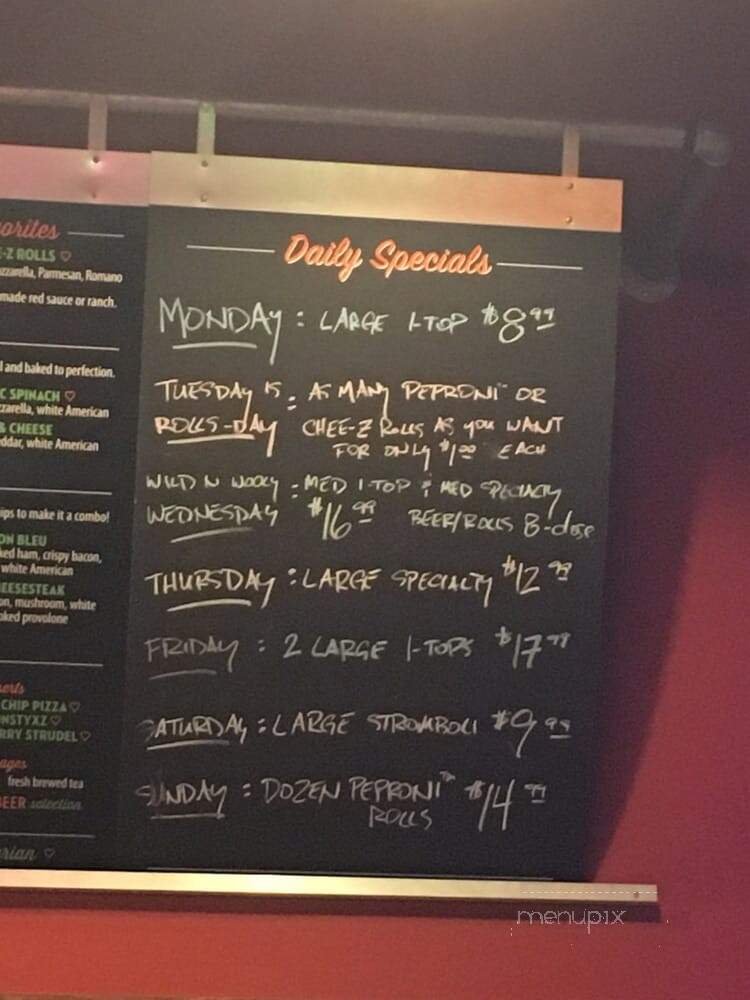 orites
E-Z ROLLS ♡
zzarella, Parmesan, Romano
made red sauce or ranch.
l and baked to perfection.
C SPINACH ♡
zarella, white American
& CHEESE
ddar, white American
ips to make it a combo!
ON BLEU
ked ham, crispy bacon,
white American
EESESTEAK
on, mushroom, white
oked provolone
erts
CHIP PIZZA ♡
NSTYXZ ♡
RRY STRUDEL ♡
ages
fresh brewed tea
BEER selection
arian ♡
Daily Specials
MONDAY : LARGE 1-TOP $8 99
TUESDAY IS : AS MANY PEPRONI™ OR
ROLLS-DAY CHEE-Z ROLLS AS YOU WANT
FOR ONLY $1 00 EACH
WILD N WOOLY : MED 1-TOP & MED SPECIALTY
WEDNESDAY $16 99 BEER/ROLLS 8-close
THURSDAY : LARGE SPECIALTY $12 99
FRIDAY : 2 LARGE 1-TOPS $17 99
SATURDAY : LARGE STROMBOLI $9 99
SUNDAY : DOZEN PEPRONI™ $14 99
ROLLS
menupix